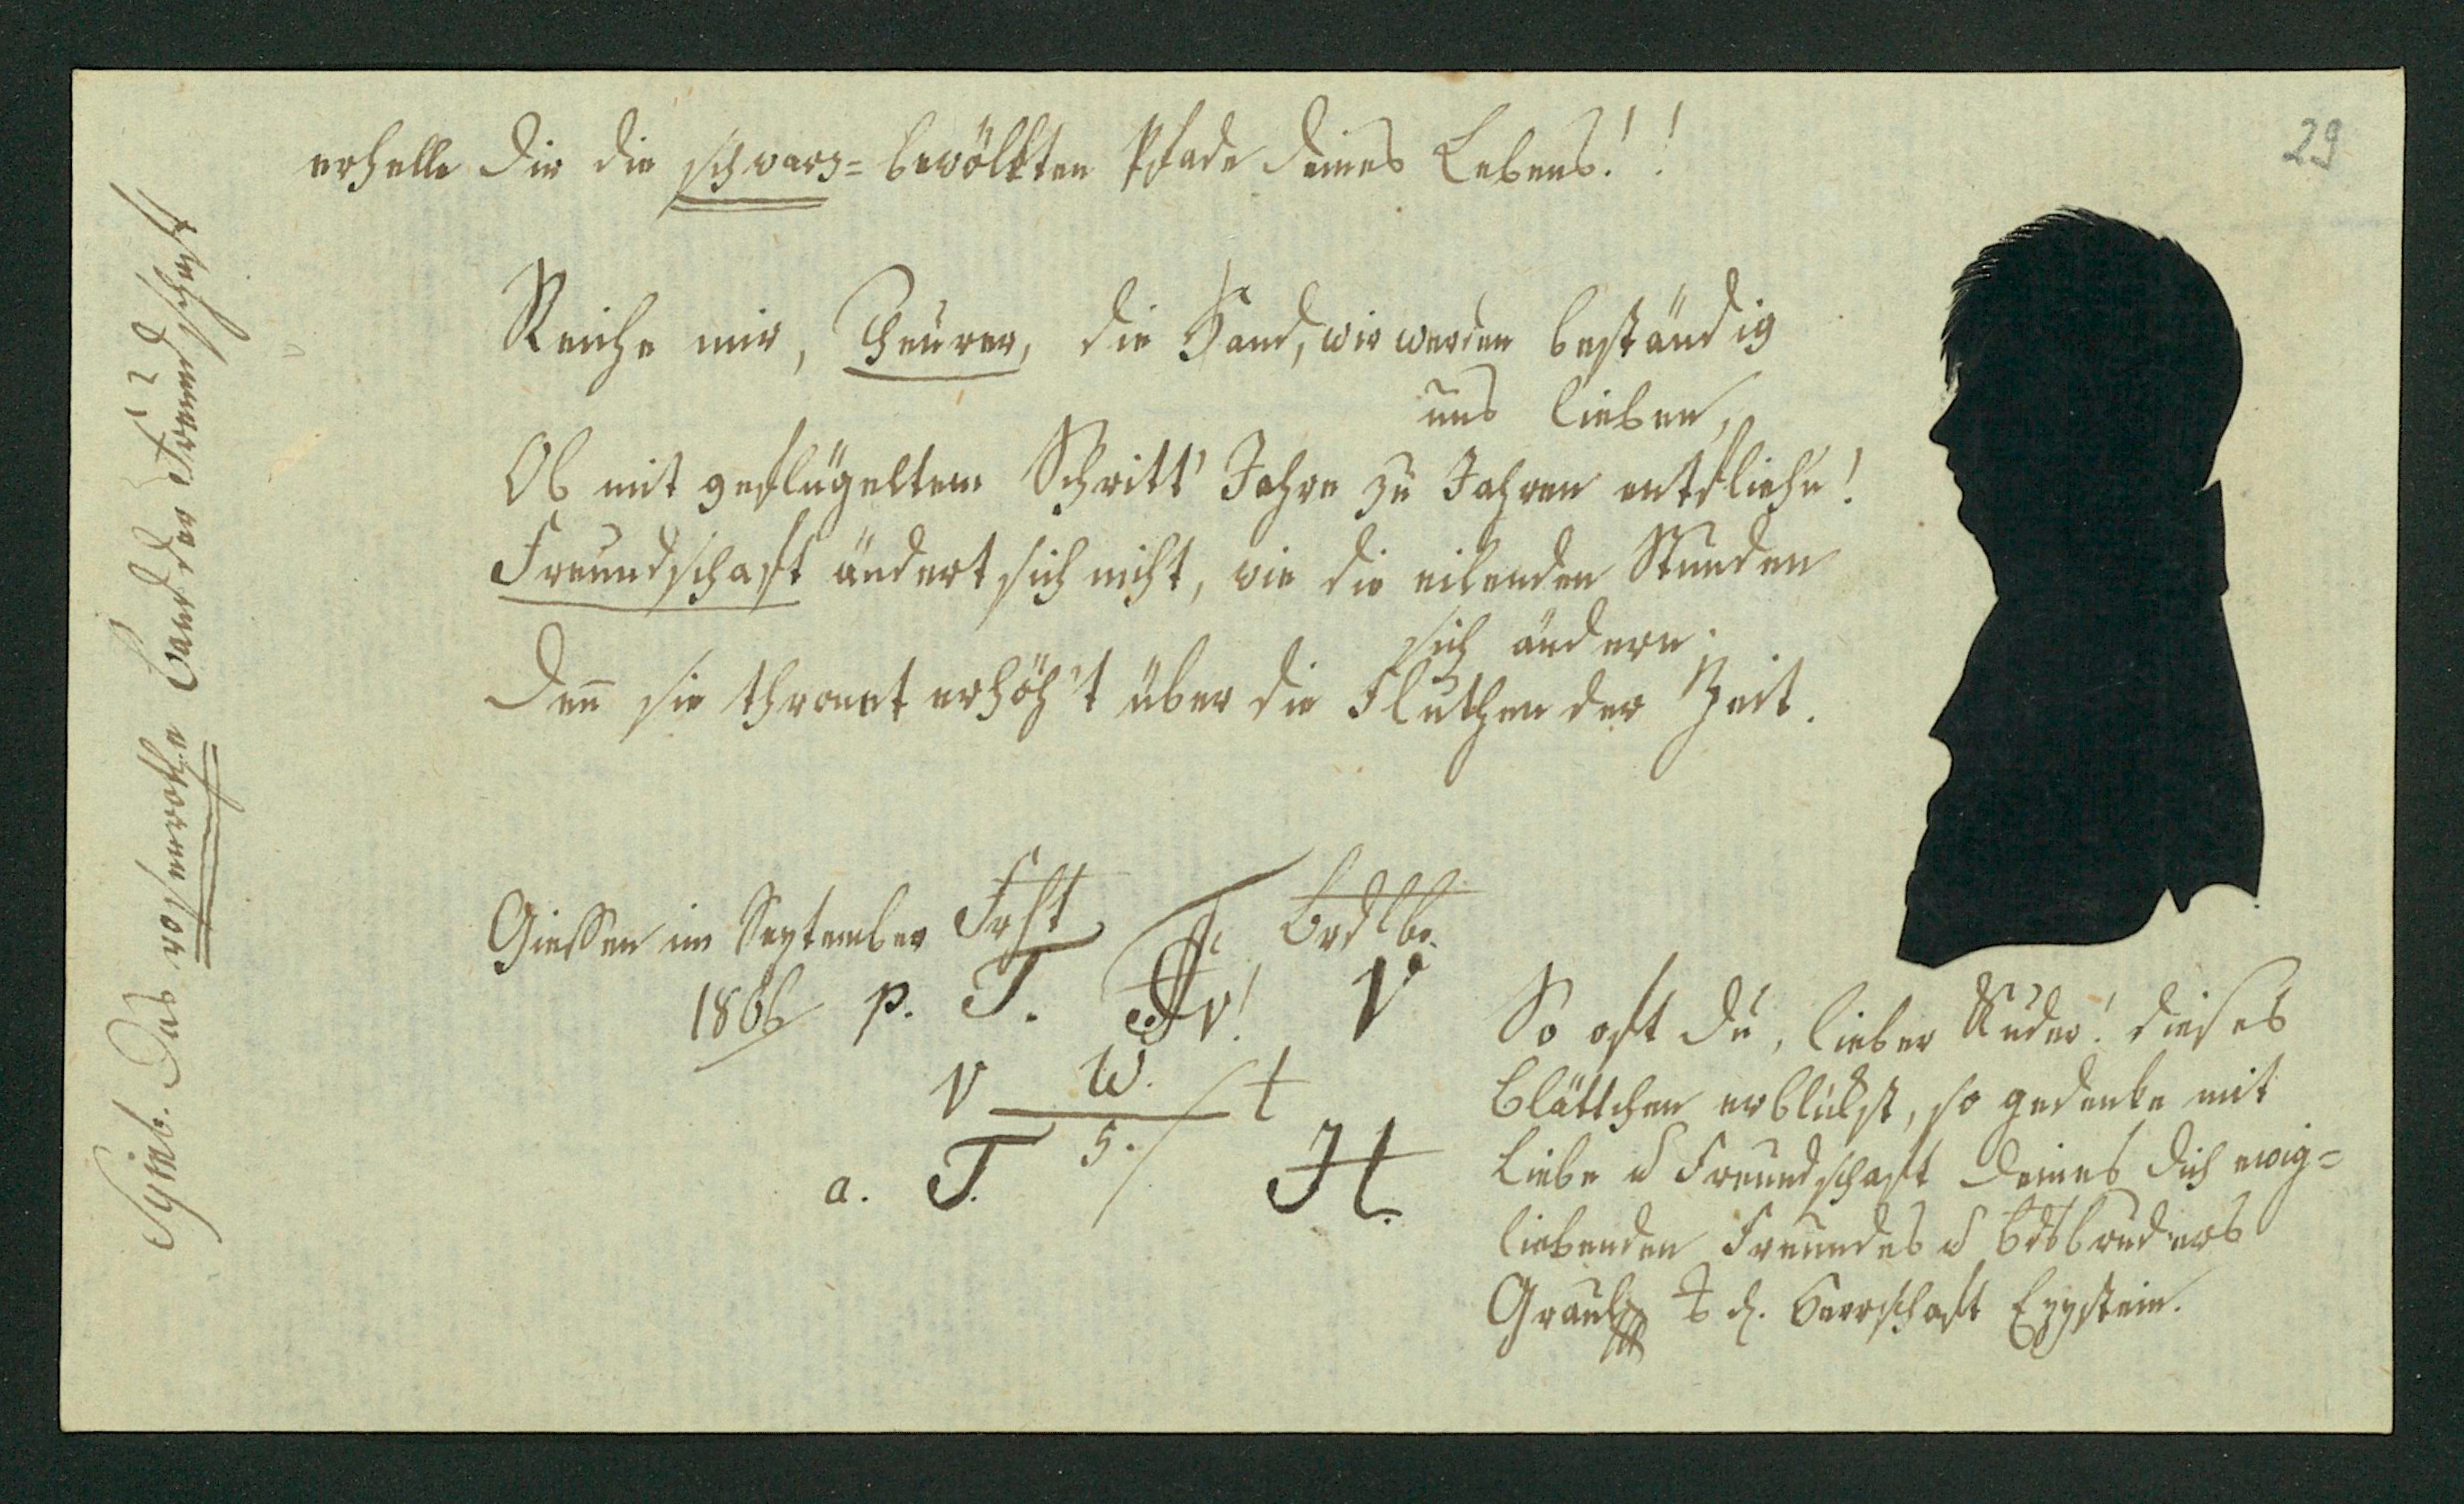 29
Symb. Das rosenrothe Band der Freundschaft
erhelle Dir die schwarz-bewölkten Pfade deines Lebens!!
Reiche mir, Theurer, die Hand, wir werden beständig
uns lieben,
Ob mit geflügeltem Schritt' Jahre zu Jahren entfliehn!
Freundschaft ändert sich nicht, wie die eilenden Stunden
sich ändern;
Denn sie thronet erhöh't über die Fluthen der Zeit.
Giessen im September
1806
Frht Brdlbe.
p. T. Fr! V
V W. t
5.
a. T. H.
So oft du, lieber Ruder! dieses
Blättchen erblickst, so gedenke mit
Liebe u Freundschaft deines dich ewig-
liebenden Freundes u Bdsbruders
d. Herrschaft Eppstein.